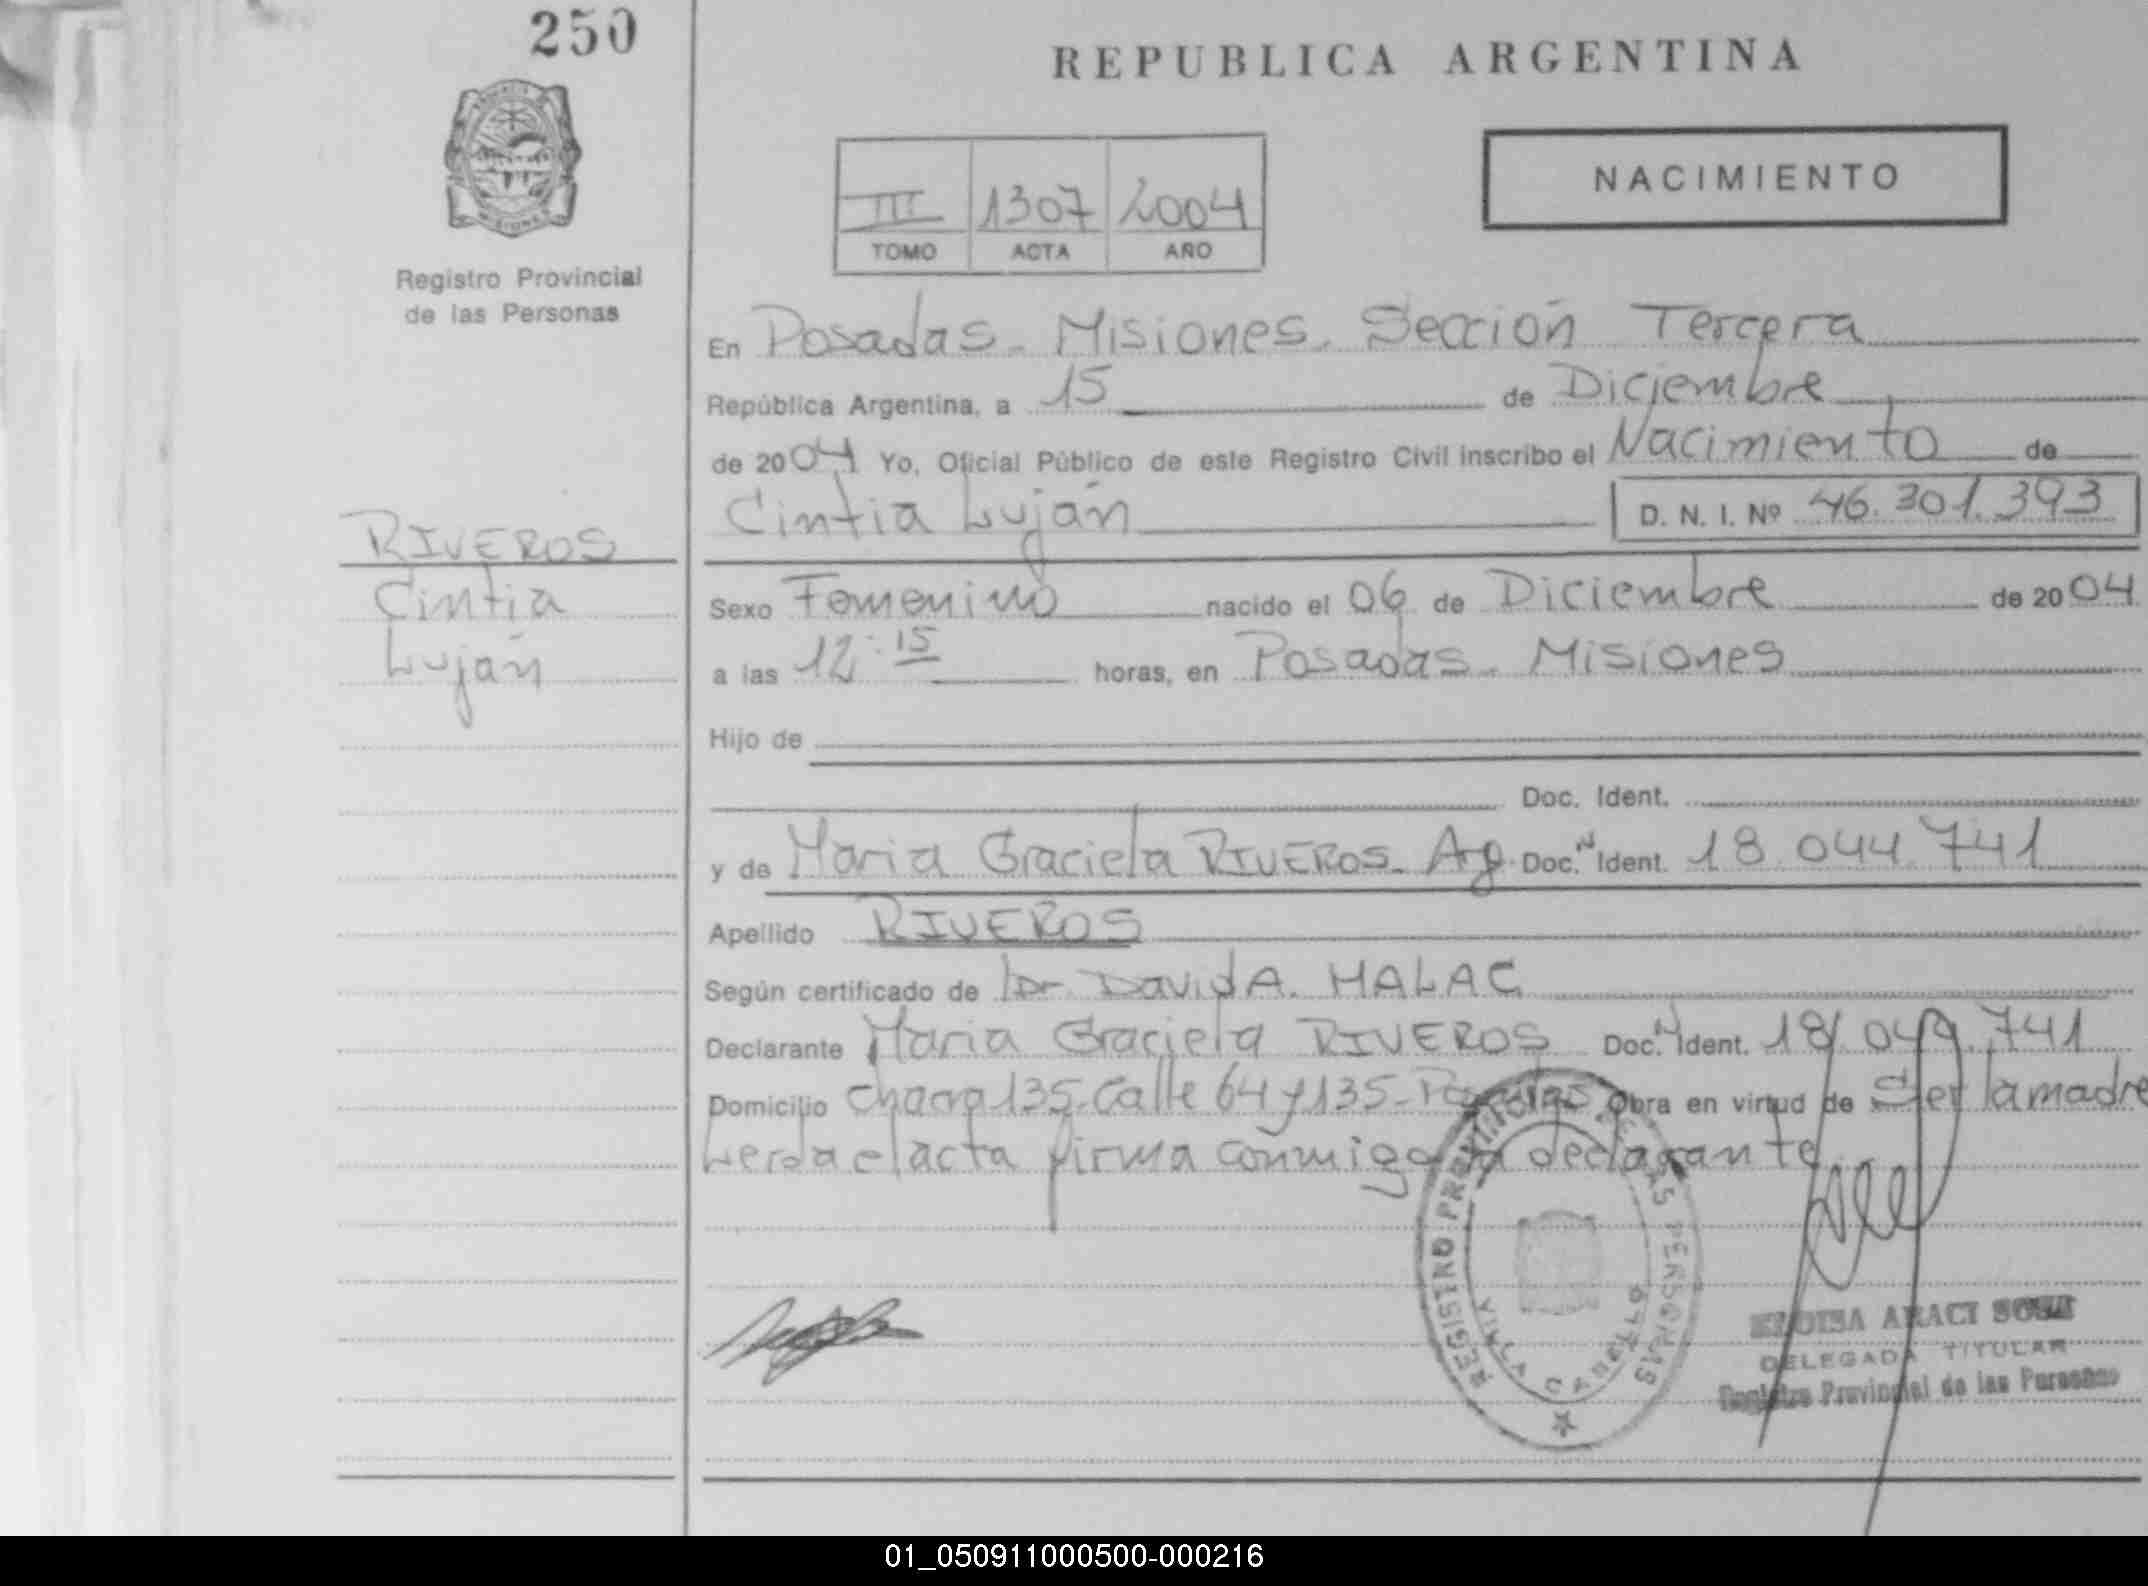 250
REPUBLICA ARGENTINA
NACIMIENTO
III 1307 2004
TOMO ACTA AÑO
Registro Provincial
de las Personas
En Posadas - Misiones. Sección Tercera
República Argentina, a 15 de Diciembre
de 2004 Yo, Oficial Público de este Registro Civil inscribo el Nacimiento de
Cintia Luján D. N. I. Nº 46.301.393
RIVEROS
Cintia
Luján
Sexo Femenino nacido el 06 de Diciembre de 2004
a las 12:15 horas, en Posadas - Misiones
Hijo de
Doc. Ident.
y de Maria Graciela RIVEROS - Arg. Doc. N Ident. 18.044.741
Apellido RIVEROS
Según certificado de Dr. David A. MALAC
Declarante Maria Graciela RIVEROS Doc. N Ident. 18.044.741
Domicilio chacra 135 - Calle 64 y 135 - Posadas Obra en virtud de Ser la madre
Leida el acta firma conmigo la declarante
REGISTRO PROVINCIAL DE LAS PERSONAS
VILLA CABELLO
ARACI SOSA
DELEGADA TITULAR
Registro Provincial de las Personas
01_050911000500-000216